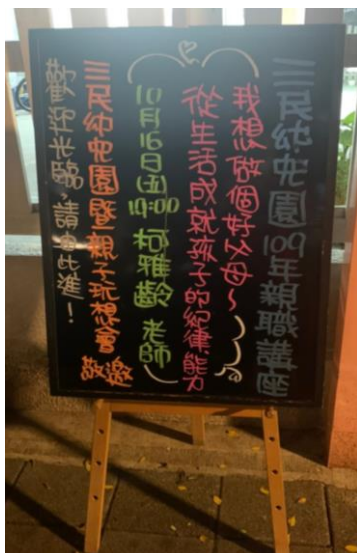 三民幼兒園109年親職講座
我想做個好父母~
從生活成就孩子的紀律、能力
10月16日(五)
19:00
柯雅齡 老師
三民幼兒園暨親子玩想會 敬邀
歡迎光臨，請由此進！